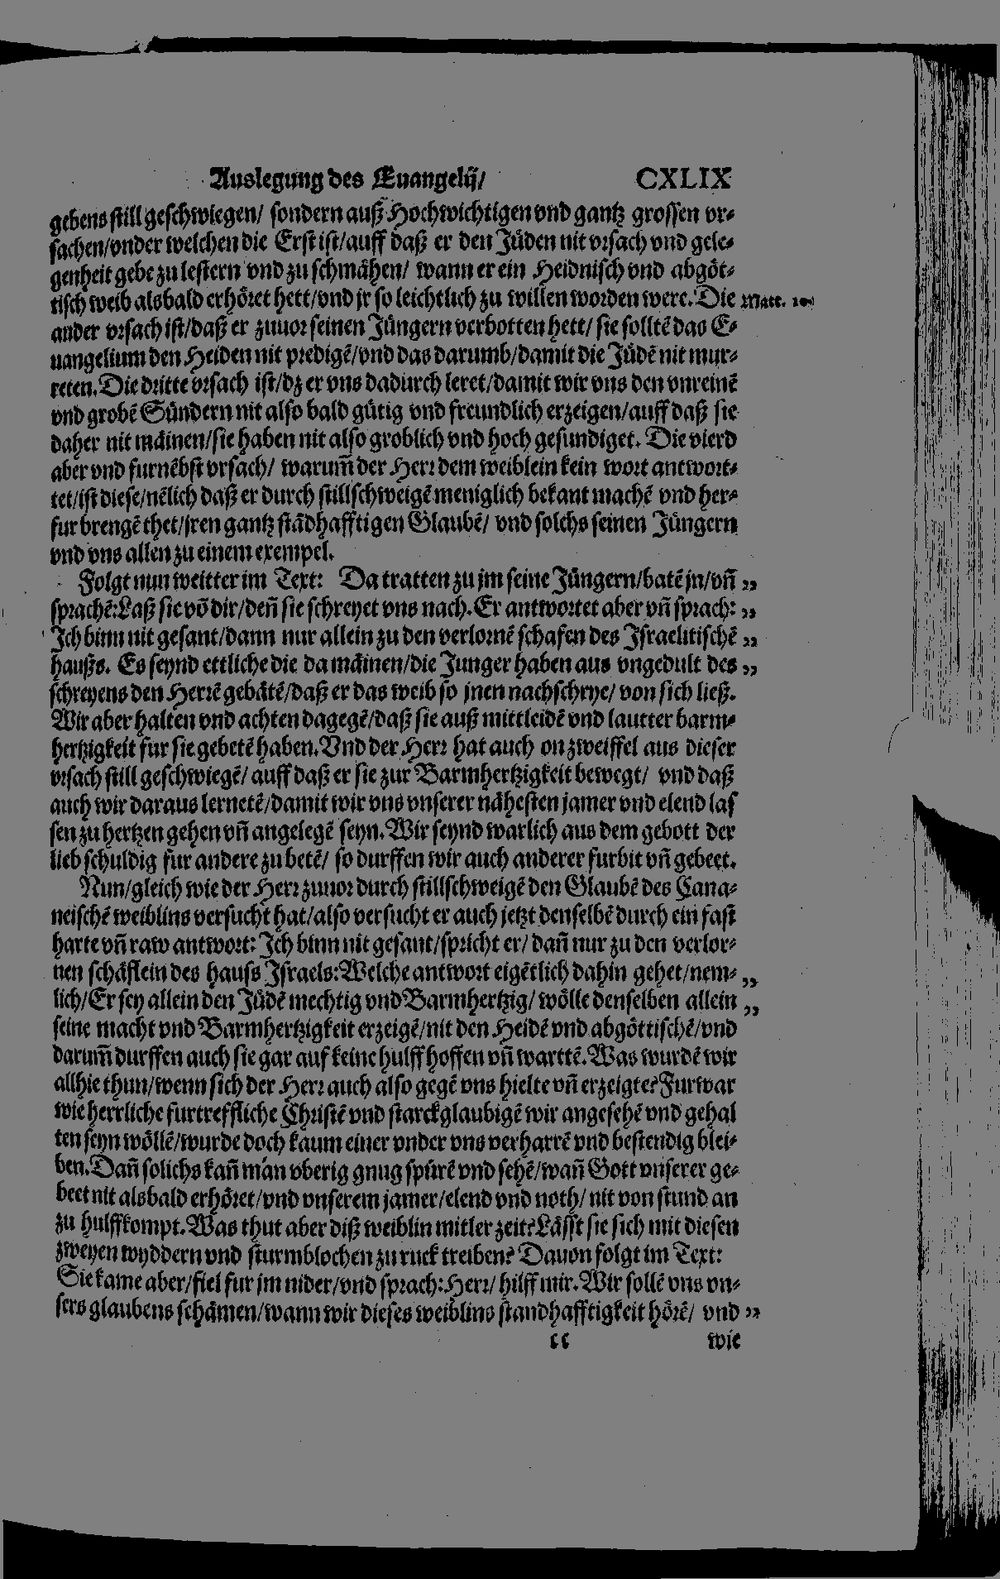 Auslegung des Euangelij/ CXLIX
gebens still geschwiegen/ sondern auß Hochwichtigen vnd gantz grossen vr-
sachen/vnder welchen die Erst ist/auff daß er den Jüden nit vrsach vnd gele-
genheit gebe zu lestern vnd zu schmähen/ wann er ein Heidnisch vnd abgöt-
tisch weib alsbald erhöret hett/vnd jr so leichtlich zu willen worden were. Die Matt. 10.
ander vrsach ist/daß er zuuor seinen Jüngern verbotten hett/ sie solltē das E-
uangelium den Heiden nit predigē/vnd das darumb/damit die Jüdē nit mur-
reten. Die dritte vrsach ist/dz er vns dadurch leret/damit wir vns den vnreinē
vnd grobē Sündern nit also bald gütig vnd freundlich erzeigen/auff daß sie
daher nit mäinen/sie haben nit also groblich vnd hoch gesundiget. Die vierd
aber vnd furnēbst vrsach/ warum̃ der Herr dem weiblein kein wort antwort-
tet/ist diese/nēlich daß er durch stillschweigē meniglich bekant machē vnd her-
fur brengē thet/jren gantz stādhafftigen Glaubē/ vnd solchs seinen Jüngern
vnd vns allen zu einem exempel.
Folgt nun weitter im Text: Da tratten zu jm seine Jüngern/batē jn/vñ „
sprachē: Laß sie vō dir/deñ sie schreyet vns nach. Er antwortet aber vñ sprach: „
Ich binn nit gesant/dann nur allein zu den verlornē schafen des Israelitischē „
haußs. Es seynd ettliche die da mäinen/die Junger haben aus vngedult des „
schreyens den Herrē gebätē/daß er das weib so jnen nachschrye/ von sich ließ.
Wir aber halten vnd achten dagegē/daß sie auß mittleidē vnd lautter barm-
hertzigkeit fur sie gebetē haben. Vnd der Herr hat auch on zweiffel aus dieser
vrsach still geschwiegē/ auff daß er sie zur Barmhertzigkeit bewegt/ vnd daß
auch wir daraus lernetē/damit wir vns vnserer nähesten jamer vnd elend las
sen zu hertzen gehen vñ angelegē seyn. Wir seynd warlich aus dem gebott der
lieb schuldig fur andere zu betē/ so durffen wir auch anderer furbit vñ gebeet.
Nun/gleich wie der Herr zuuor durch stillschweigē den Glaubē des Cana-
neischē weiblins versucht hat/also versucht er auch jetzt denselbē durch ein fast
harte vñ raw antwort: Ich binn nit gesant/spricht er/ dañ nur zu den verlor-
nen schäflein des hauss Israels: Welche antwort eigētlich dahin gehet/nem- „
lich/Er sey allein den Jüdē mechtig vnd Barmhertzig/ wölle denselben allein „
seine macht vnd Barmhertzigkeit erzeigē/nit den Heidē vnd abgöttischē/vnd
darum̃ durffen auch sie gar auf keine hulff hoffen vñ warttē. Was wurdē wir
allhie thun/wenn sich der Herr auch also gegē vns hielte vñ erzeigte? Furwar
wie herrliche furtreffliche Christē vnd starckglaubigē wir angesehē vnd gehal
ten seyn wöllē/wurde doch kaum einer vnder vns verharrē vnd bestendig blei-
ben. Dañ solichs kañ man vberig gnug spürē vnd sehē/wañ Gott vnserer ge-
beet nit alsbald erhöret/vnd vnserem jamer/elend vnd noth/ nit von stund an
zu hulff kompt. Was thut aber diß weiblin mitler zeit? Lässt sie sich mit diesen
zweyen wyddern vnd sturmblochen zu ruck treiben? Dauon folgt im Text:
Sie kame aber/fiel fur jm nider/vnd sprach: Herr/ hilff mir. Wir sollē vns vn-
sers glaubens schämen/wann wir dieses weiblins standhafftigkeit hörē/ vnd „
cc wie